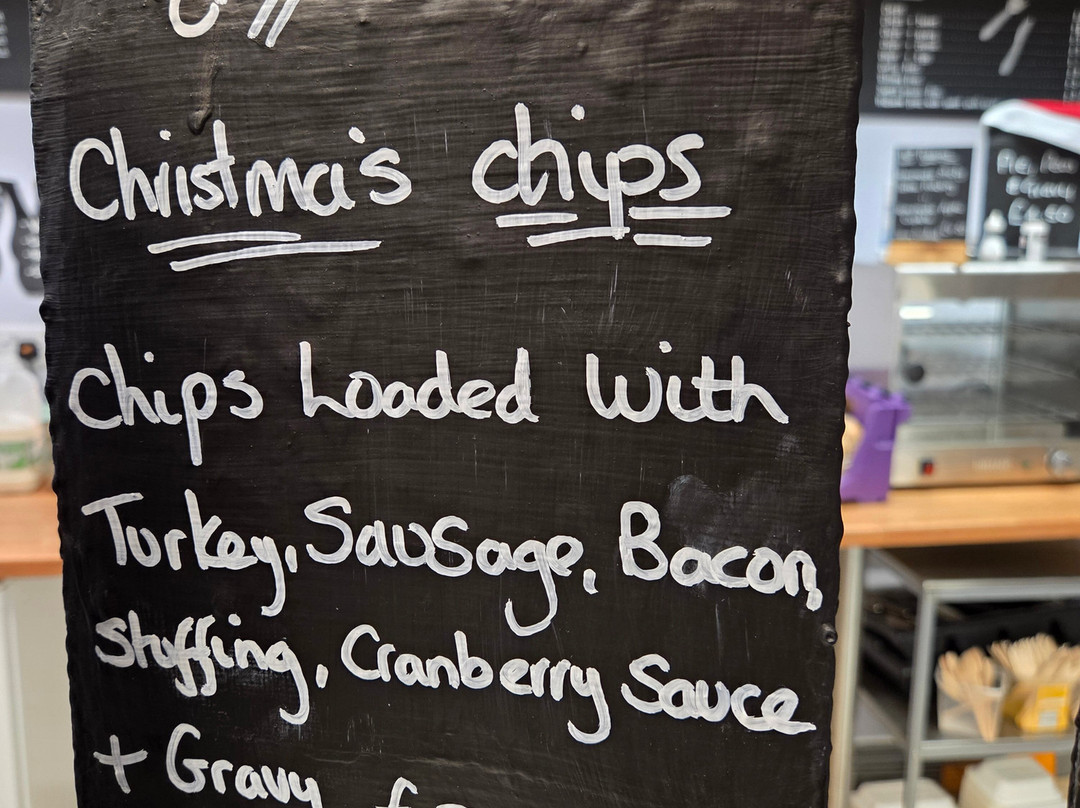 Christma's chips
Chips Loaded with
Turkey, Sausage, Bacon,
Stuffing, Cranberry Sauce
+ Gravy
Pie,
+ Gravy